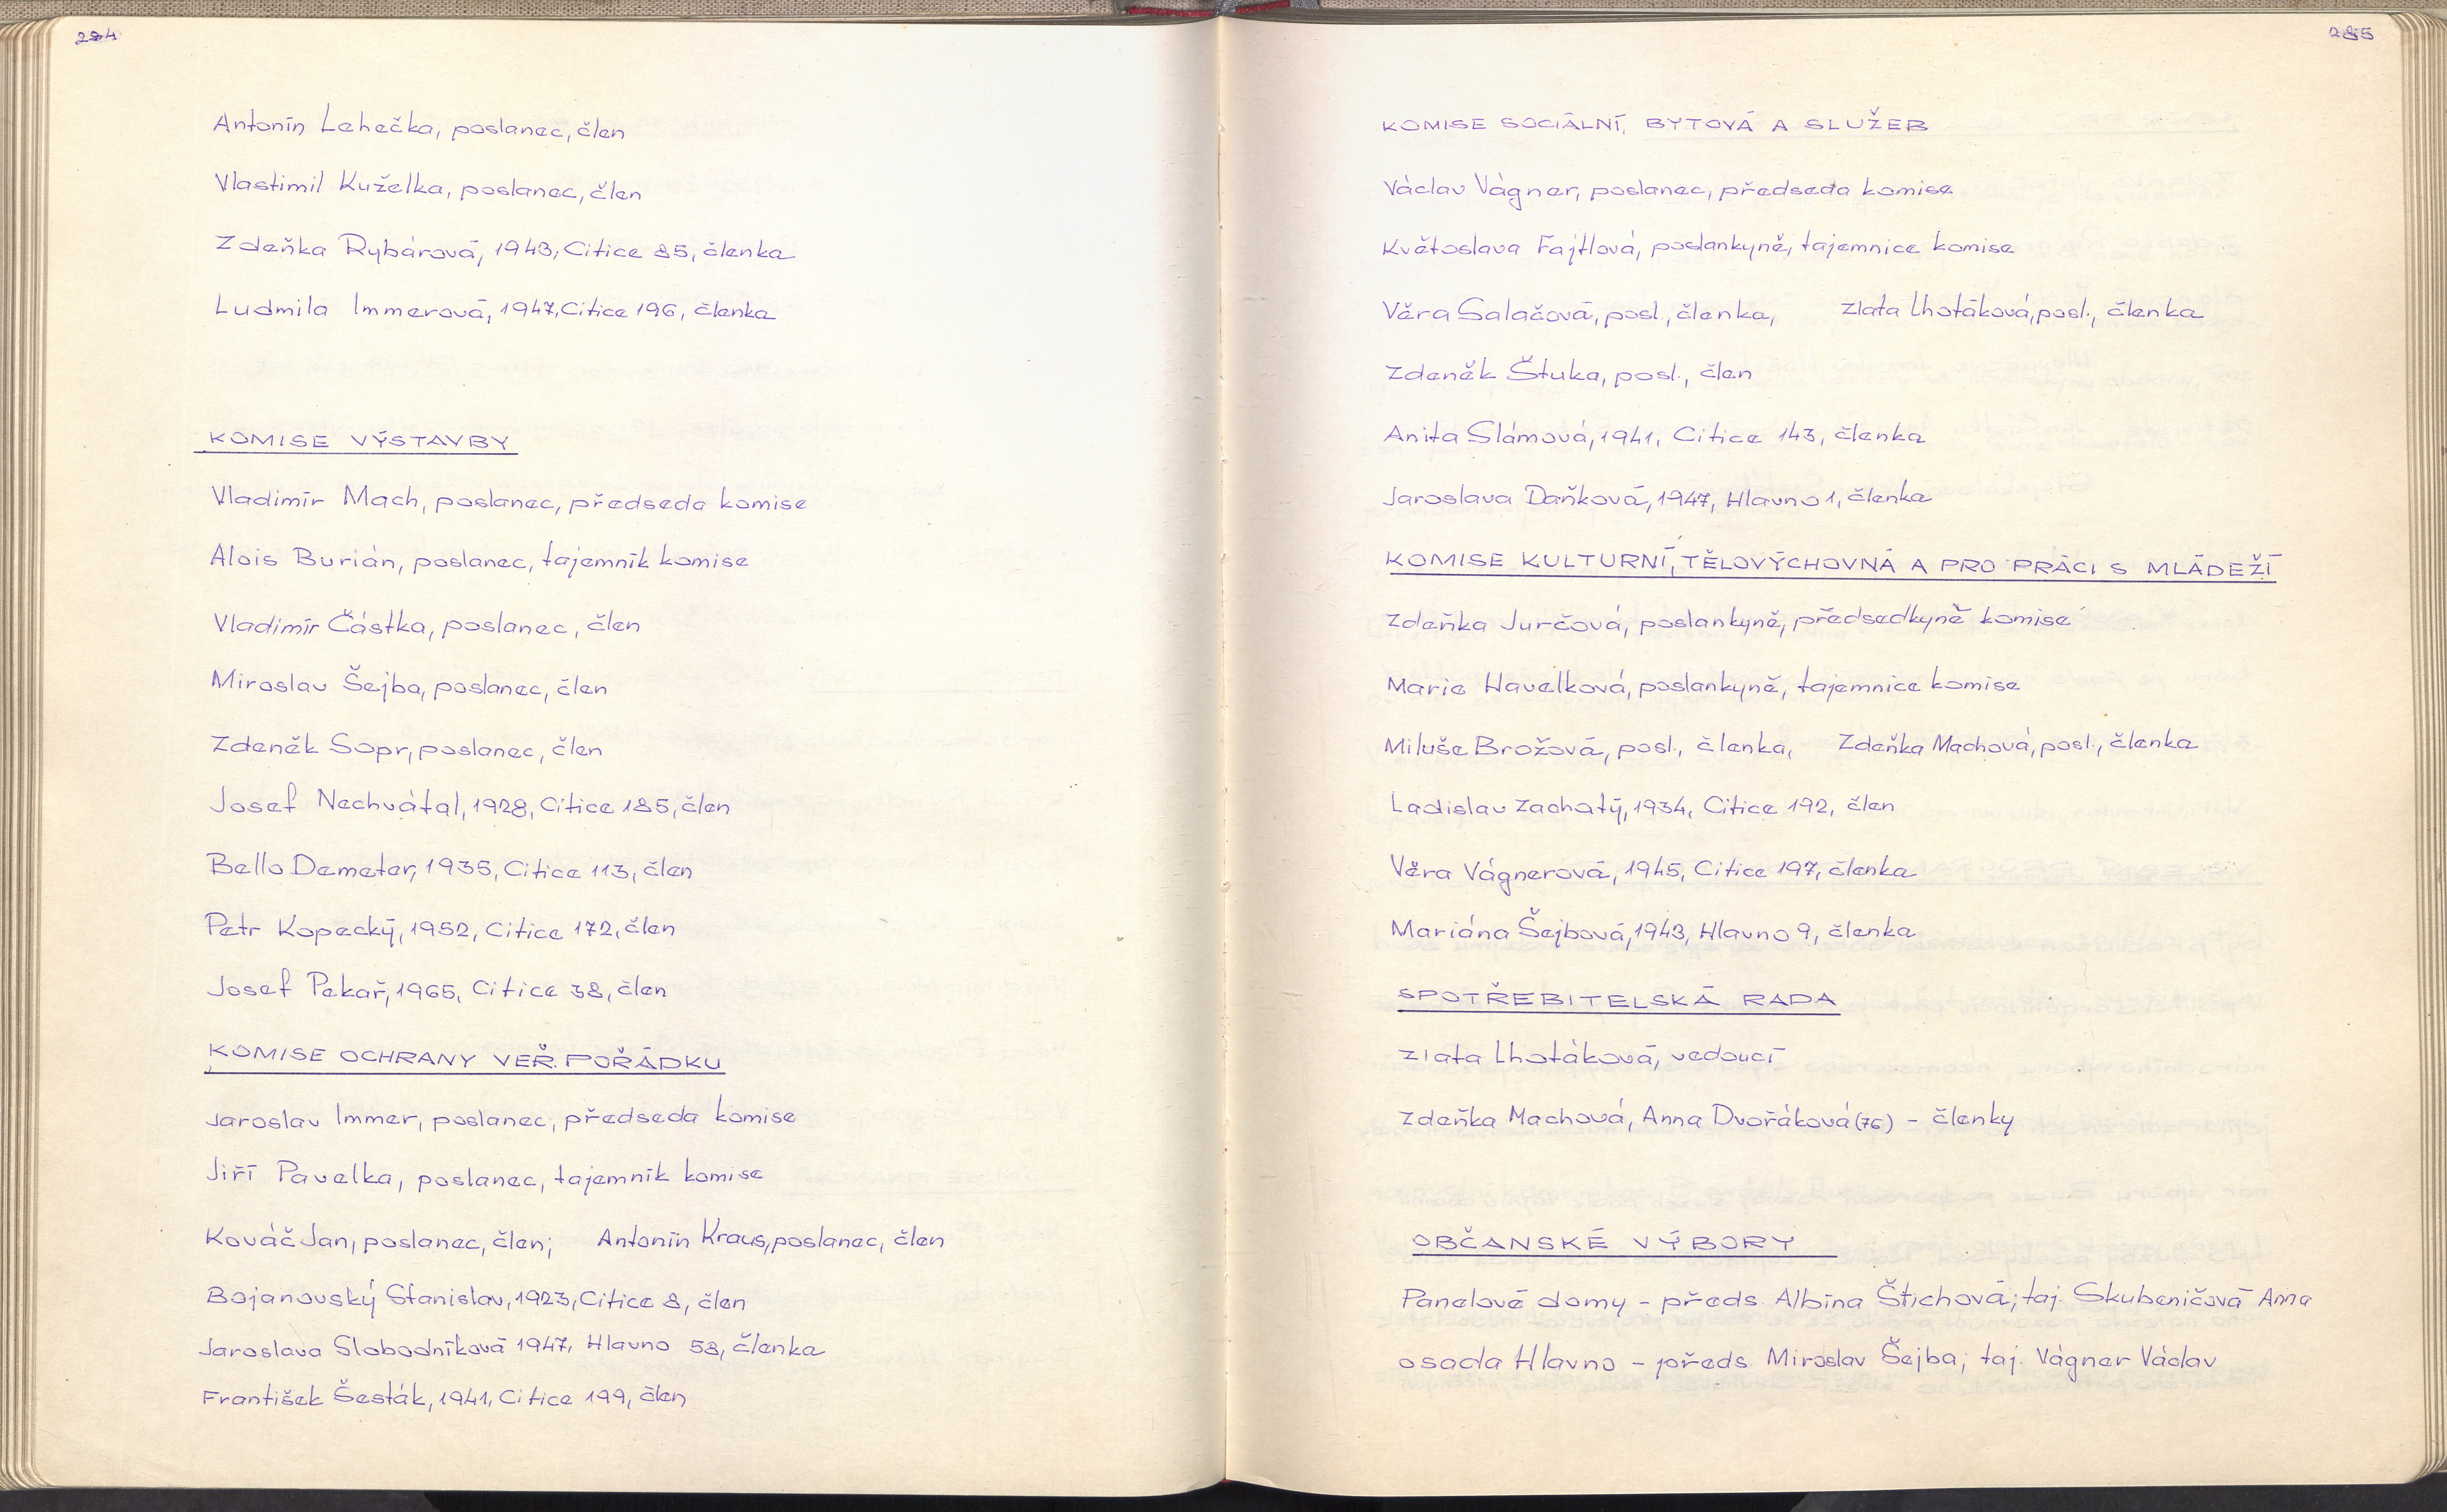 284
Antonín Lehečka, poslanec, člen
Vlastimil Kuželka, poslanec, člen
Zdeňka Rybárová, 1943, Citice 85, členka
Ludmila Immerová, 1947, Citice 196, členka
KOMISE VÝSTAVBY
Vladimír Mach, poslanec, předseda komise
Alois Burián, poslanec, tajemník komise
Vladimír Částka, poslanec, člen
Miroslav Šejba, poslanec, člen
Zdeněk Sopr, poslanec, člen
Josef Nechvátal, 1928, Citice 185, člen
Bello Demeter, 1935, Citice 113, člen
Petr Kopecký, 1952, Citice 172, člen
Josef Pekař, 1965, Citice 38, člen
KOMISE OCHRANY VEŘ. POŘÁDKU
Jaroslav Immer, poslanec, předseda komise
Jiří Pavelka, poslanec, tajemník komise
Kováč Jan, poslanec, člen; Antonín Kraus, poslanec, člen
Bojanovský Stanislav, 1923, Citice 8, člen
Jaroslava Slobodníková 1947, Hlavno 58, členka
František Šesták, 1941, Citice 199, člen
285
KOMISE SOCIÁLNÍ, BYTOVÁ A SLUŽEB
Václav Vágner, poslanec, předseda komise
Květoslava Fajtlová, poslankyně, tajemnice komise
Věra Salačová, posl., členka, Zlata Lhotáková, posl., členka
Zdeněk Štuka, posl., člen
Anita Slámová, 1941, Citice 143, členka
Jaroslava Daňková, 1947, Hlavno 1, členka
KOMISE KULTURNÍ, TĚLOVÝCHOVNÁ A PRO PRÁCI S MLÁDEŽÍ
Zdeňka Jurčová, poslankyně, předsedkyně komise
Marie Havelková, poslankyně, tajemnice komise
Miluše Brožová, posl., členka, Zdeňka Machová, posl., členka
Ladislav Zachatý, 1934, Citice 192, člen
Věra Vágnerová, 1945, Citice 197, členka
Mariána Šejbová, 1943, Hlavno 9, členka
SPOTŘEBITELSKÁ RADA
Zlata Lhotáková, vedoucí
Zdeňka Machová, Anna Dvořáková (76) - členky
OBČANSKÉ VÝBORY
Panelové domy - předs. Albína Štichová; taj. Skubeničová Anna
osada Hlavno - předs. Miroslav Šejba; taj. Vágner Václav